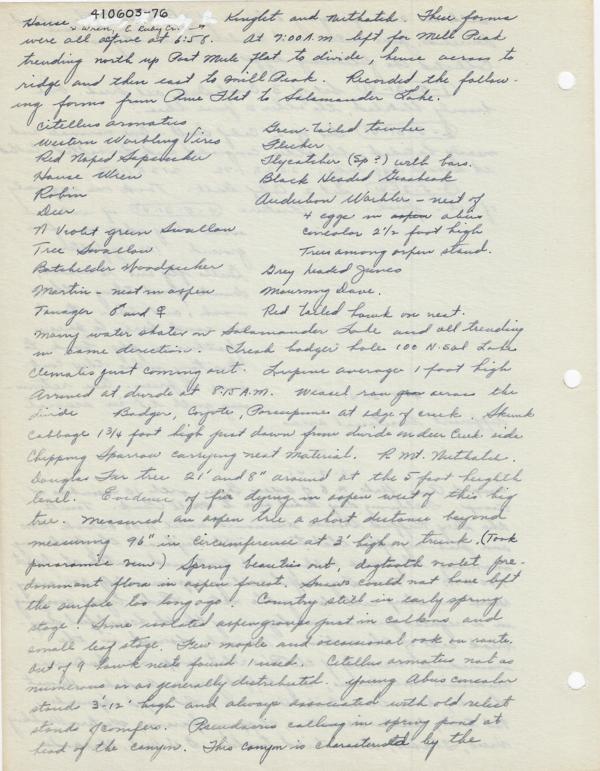 410603-76
House Knight and Nuthatch. These forms
were all active at 6:58. At 7:00 A.M left for Mill Peak
trending north up Post Mule Flat to divide, hence across to
ridge and then east to Mill Peak. Recorded the follow-
ing forms from Flat to Salamander Lake.
Citellus armatus
Western Warbling Vireo
Red Naped Sapsucker
House Wren
Robin
Deer
N Violet green Swallow
Tree Swallow
Batchelder Woodpecker
Martin - nest in aspen
Tanager ♂ and ♀
Green-tailed towhee
Flicker
Flycatcher (Sp?) with bars.
Black Headed Grosbeak
Audubon Warbler - nest of
4 eggs in aspen abies
concolor 2 1/2 foot high
Trees among aspen stand.
Grey headed Junco
Mourning Dove.
Red tailed hawk on nest.
Many water skater in Salamander Lake and all trending
in same direction. Fresh badger hole 100 N. Lake
Clematis just coming out. average 1 foot high
Arrived at divide at 8:15 A.M. Weasel ran across the
divide Badger, Coyote, Porcupine at edge of creek. Skunk
Cabbage 1 3/4 foot high just down from divide on deer Creek side
Chipping Sparrow carrying nest Material. R. Mt. Nuthatch.
Douglas Fur tree 21' and 8" around at the 5 foot heighth
level. Evidence of fir dying in aspen west of this big
tree. Measured an aspen tree a short distance beyond
measuring 96" in Circumference at 3' high on trunk. (Took
panoramic view) Spring beauties out, dogtooth violet pre-
dominant flora in aspen forest. Snows could not have left
the surface too long ago. Country still in early spring
stage. Some isolated aspen groups just in catkins and
small leaf stage. Few maple and occasional oak on route.
Out of 9 hawk nests found 1 used. Citellus armatus not as
numerous or as generally distributed. Young Abies concolor
stand 3'-12' high and always associated with old relict
stands of conifers. Pseudacris calling in spring pond at
head of the canyon. This canyon is characterized by the